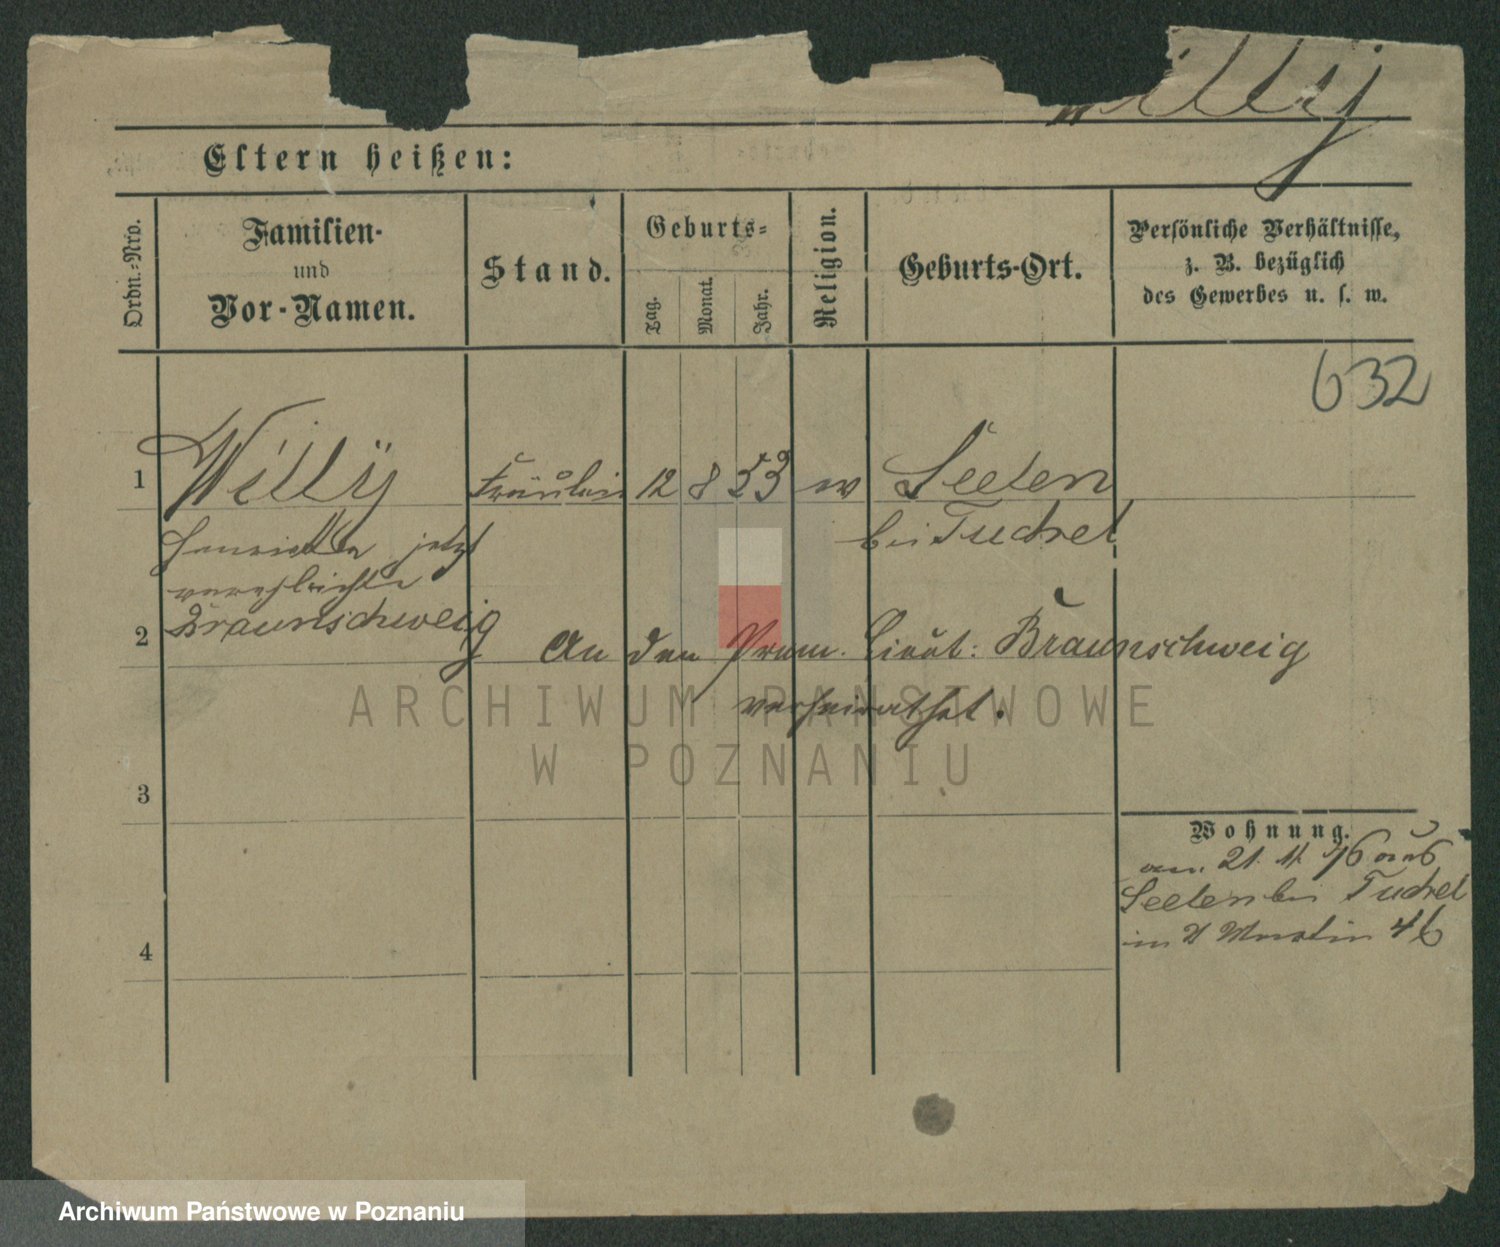 Willy
Eltern heißen:
Ordn.-Nro.
Familien-
und
Vor-Namen.
Stand.
Geburts-
Tag.
Monat.
Jahr.
Religion.
Geburts-Ort.
Persönliche Verhältnisse,
z. B. bezüglich
des Gewerbes u. s. w.
632
1 Willy Fräulein 12 8 53 Seelen
Henriette jetzt bei Tuchel
verehlichte
2 Braunschweig
An den Prem. Lieut: Braunschweig
verheirathet.
ARCHIWUM PAŃSTWOWE
W POZNANIU
3
Wohnung.
am 21. 11. 76 aus
Seelen bei Tuchel
in St Martin 46
4
Archiwum Państwowe w Poznaniu